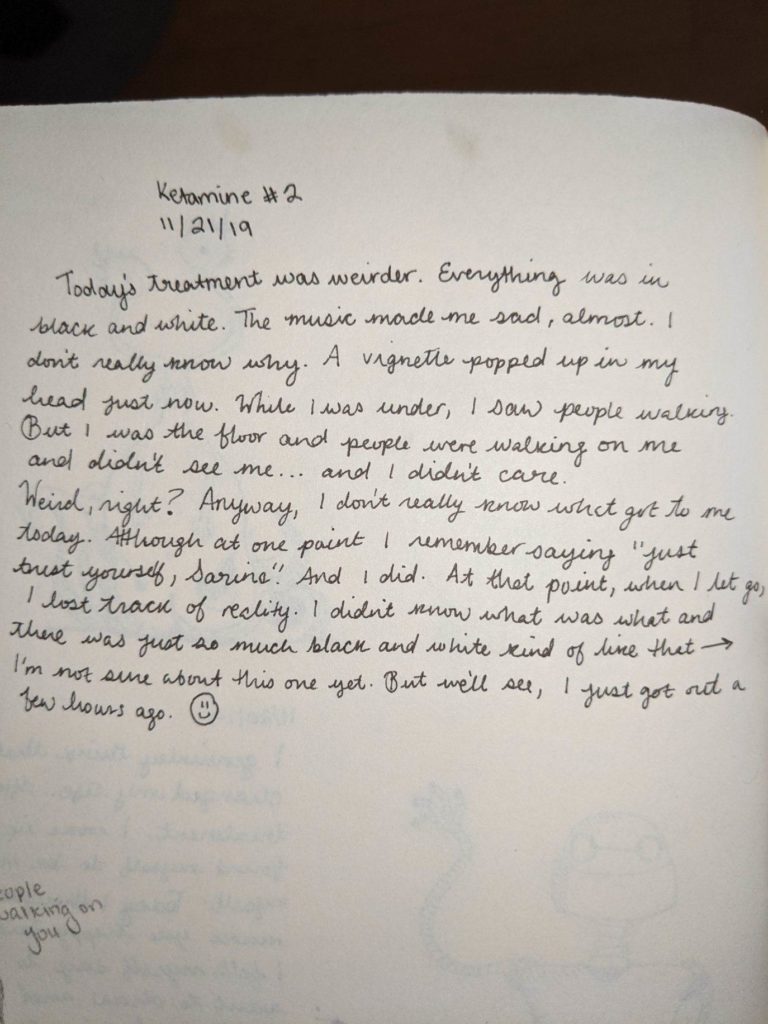 Ketamine #2
11/21/19
Today's treatment was weirder. Everything was in
black and white. The music made me sad, almost. I
don't really know why. A vignette popped up in my
head just now. While I was under, I saw people walking.
But I was the floor and people were walking on me
and didn't see me... and I didn't care.
Weird, right? Anyway, I don't really know what got to me
today. Although at one point I remember saying "just
trust yourself, Sarina". And I did. At that point, when I let go,
I lost track of reality. I didn't know what was what and
there was just so much black and white kind of like that →
I'm not sure about this one yet. But we'll see, I just got out a
few hours ago. ☺
eople
walking on
you